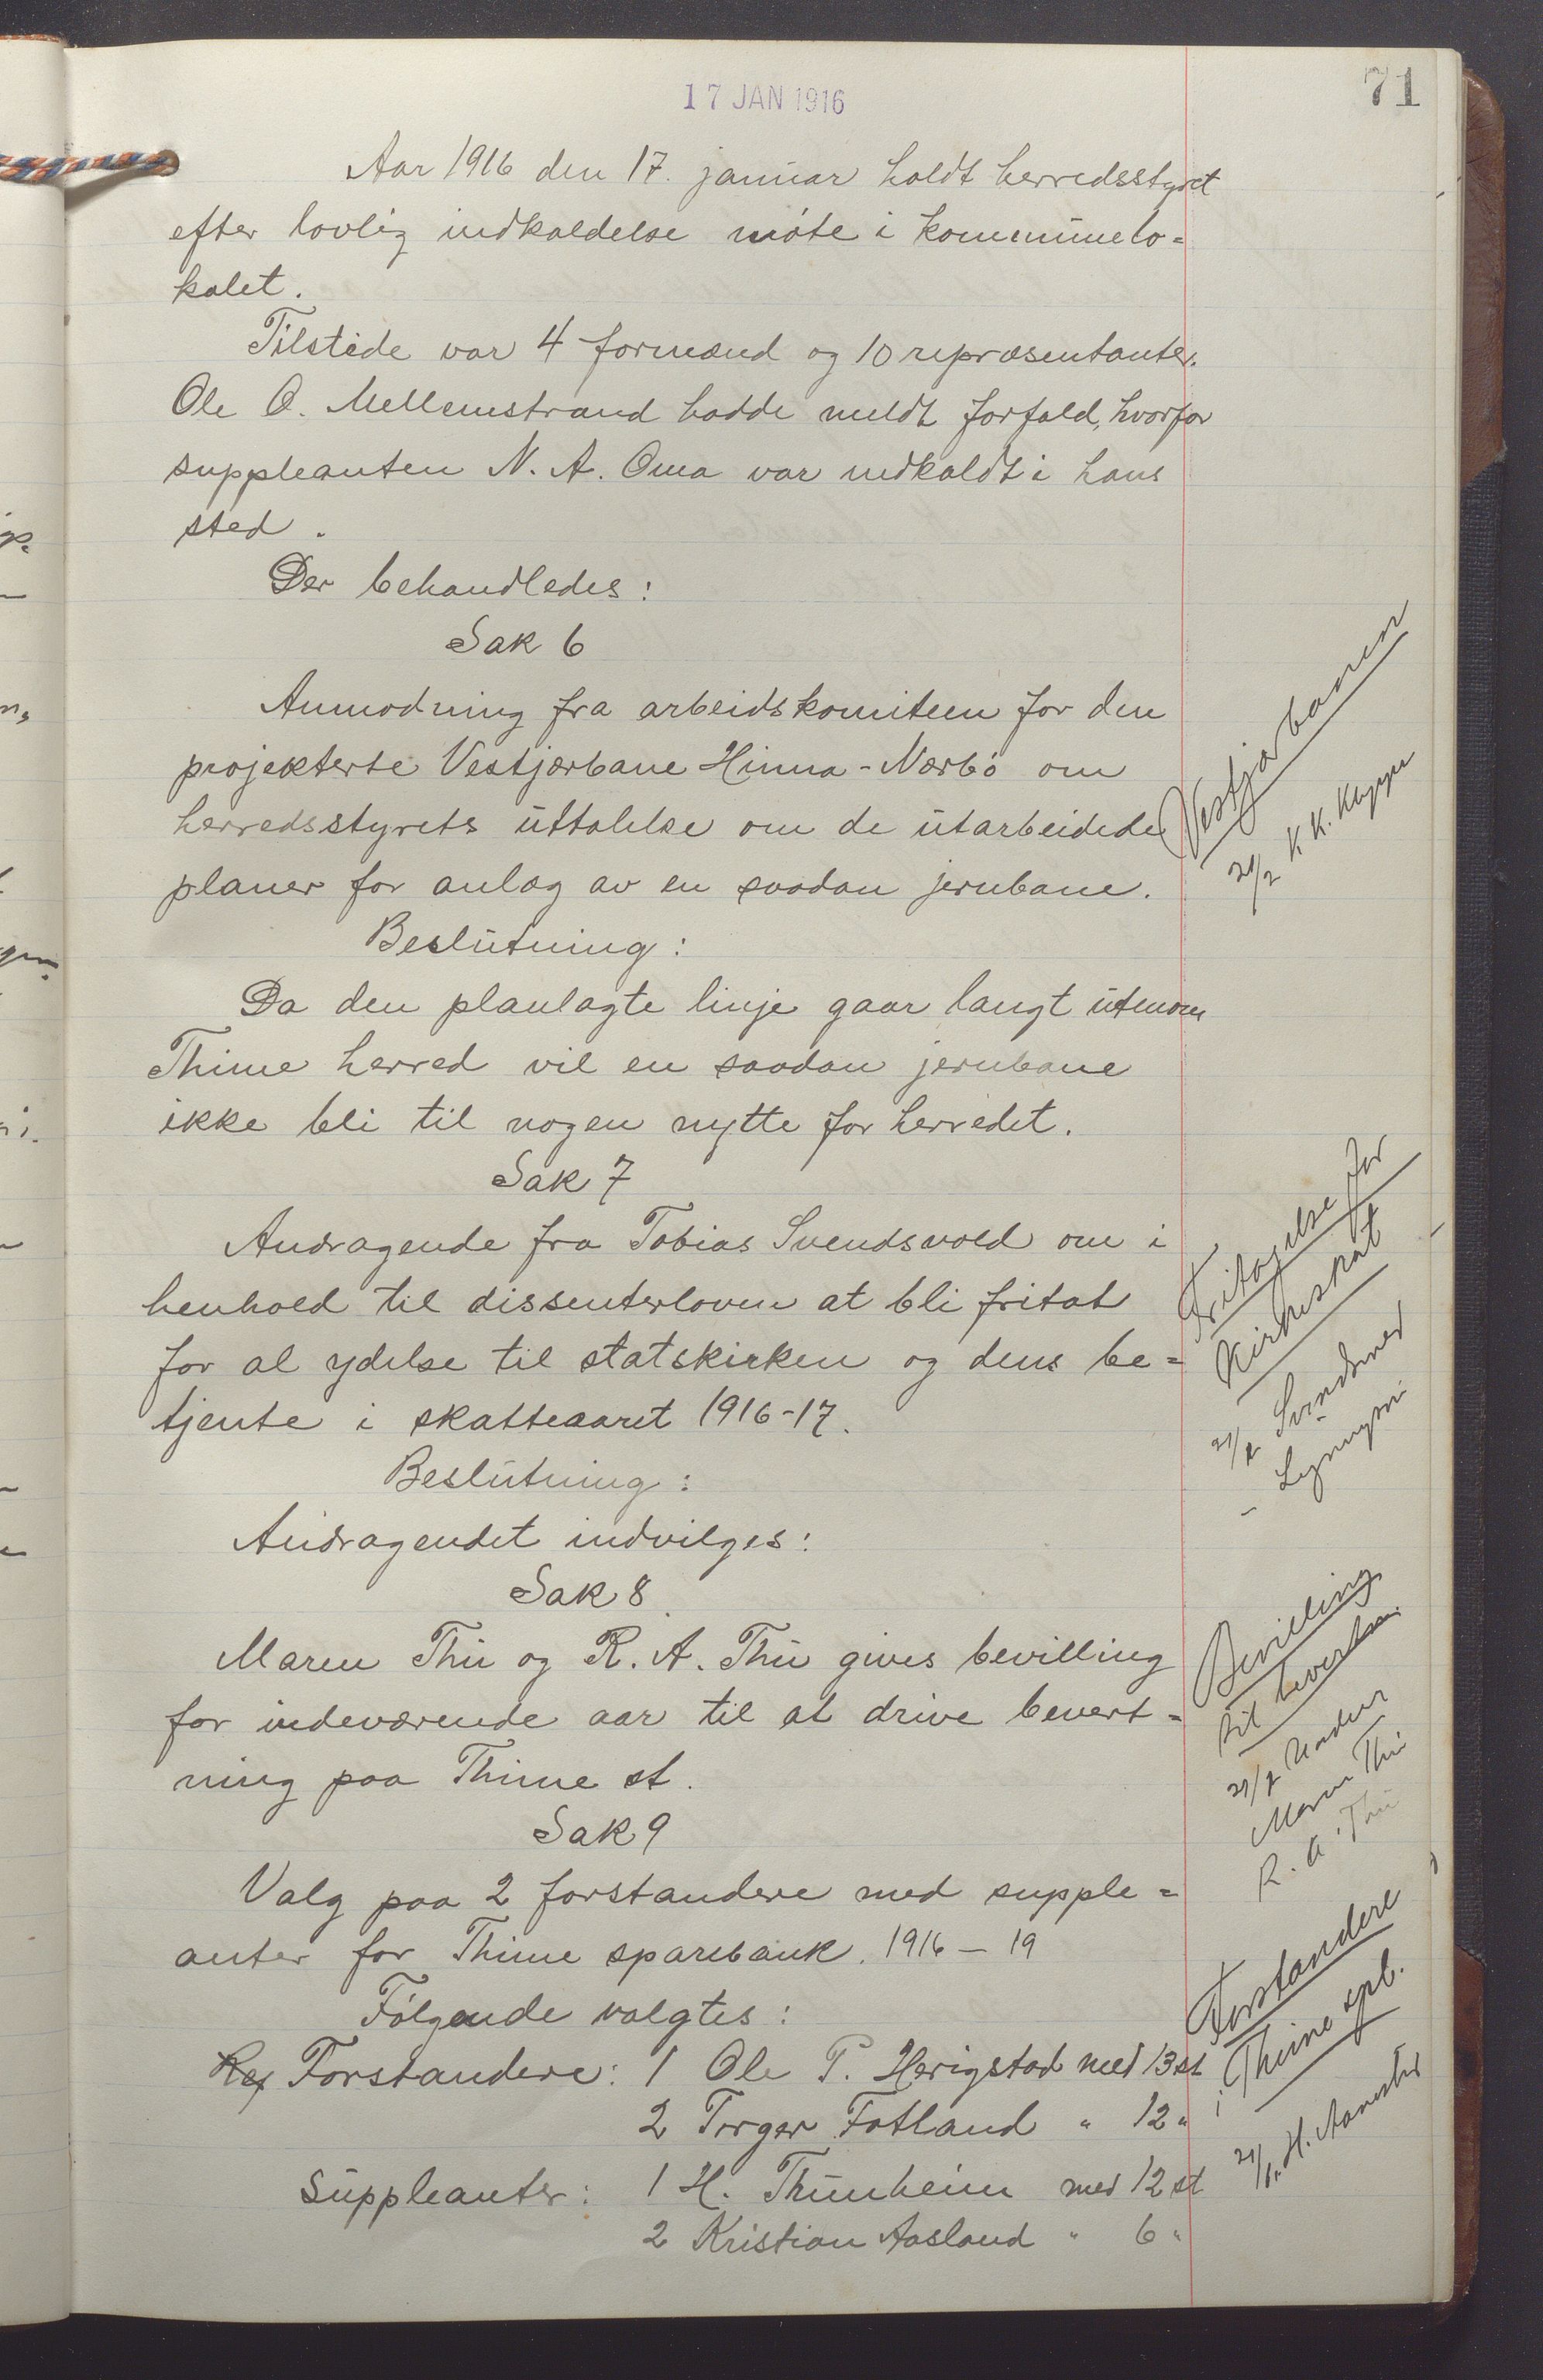 17 JAN 1916
71
Aar 1916 den 17. januar holdt herredsstyret
efter lovlig indkaldelse møte i kommunelo-
kalet.
Tilstede var 4 formænd og 10 repræsentanter.
Ole O. Mellemstrand hadde meldt forfald, hvorfor
suppleanten N. A. Oma var indkaldt i hans
sted.
Der behandledes:
Sak 6
Anmodning fra arbeidskomiteen for den
projekterte Vestjærbane Hinna-Nærbø om
herredsstyrets uttalelse om de utarbeidede
planer for anlæg av en saadan jernbane.
Vestjabanen
21/2 K. K. Kleppe
Beslutning:
Da den planlagte linje gaar langt utenom
Thime herred vil en saadan jernbane
ikke bli til nogen nytte for herredet.
Sak 7
Andragende fra Tobias Svendsvold om i
henhold til dissenterloven at bli fritat
for al ydelse til statskirken og dens be-
tjente i skatteaaret 1916-17.
Fritagelse for
Kirkeskat
21/2
Beslutning:
Andragendet indvilges:
Sak 8
Maren Thu og R. A. Thu gives bevilling
for indeværende aar til at drive bevert-
ning paa Thime st.
Bevilling
til
21/2
Maren Thu
R. A. Thu
Sak 9
Valg paa 2 forstandere med supple-
anter for Thime sparebank. 1916-19
Følgende valgtes:
Forstandere: 1 Ole P. Herigstad med 13 st
2 Torger Fotland " 12 "
Suppleanter: 1 H. Thunheim med 12 st
2 Kristian Aasland " 6 "
Forstandere
i Thime spb.